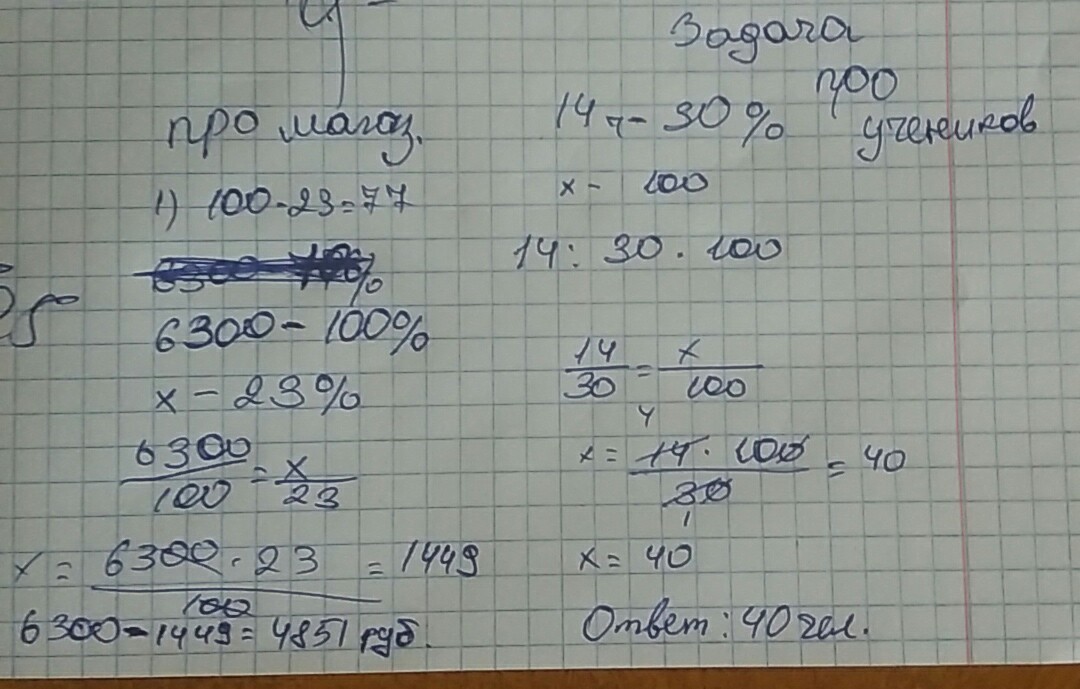 про магаз.
1) 100-23=77
6300 - 100%
x - 23%
6300/100 = x/23
x = 6300·23/100 = 1449
6300-1449=4851 руб.
Задача
про
учеников
14 - 30%
x - 100
14 : 30 · 100
14/30 = x/100
x = 14·100/30 = 40
4
1
x = 40
Ответ: 40 чел.